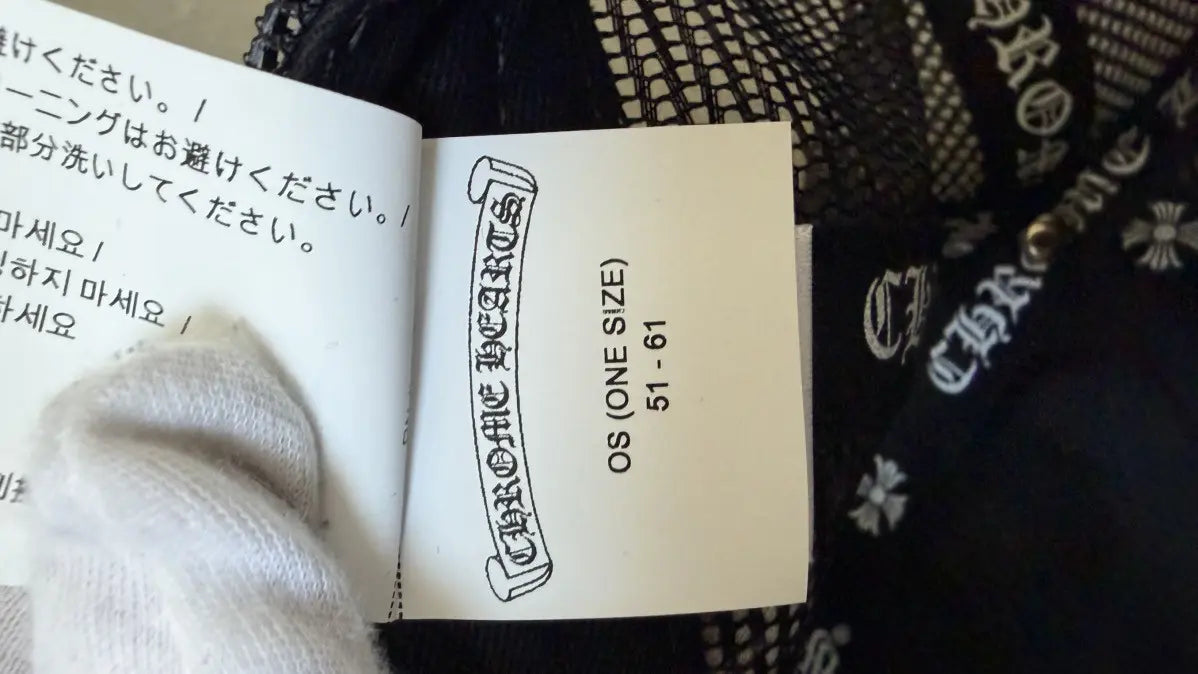 避けください。 /
ーニングはお避けください。 /
部分洗いしてください。
마세요 /
하지 마세요 /
하세요
CHROME HEARTS
OS (ONE SIZE)
51 - 61
CHRO
CH
CHROME